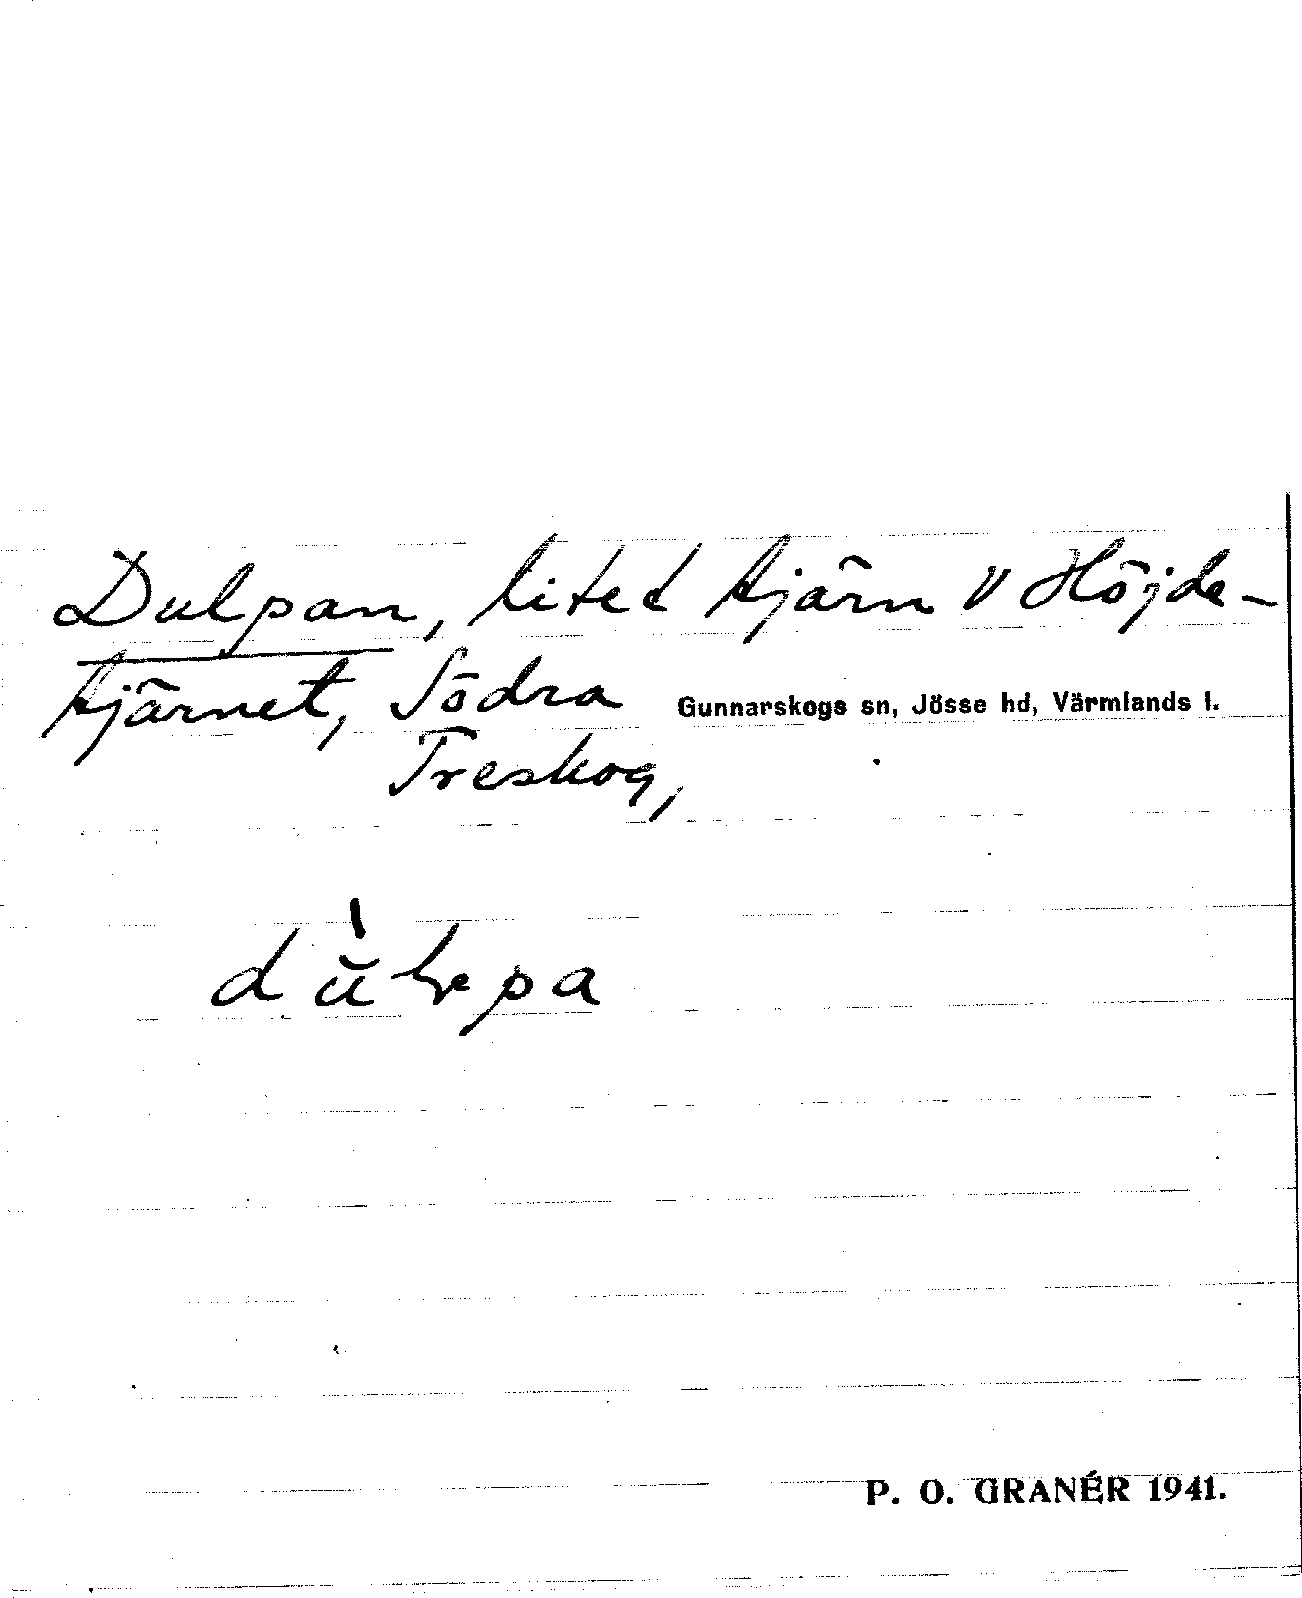 Dulpan, litet tjärn v Höjde-
tjärnet, Södra Gunnarskogs sn, Jösse hd, Värmlands l.
Treskog,
P. O. GRANÉR 1941.